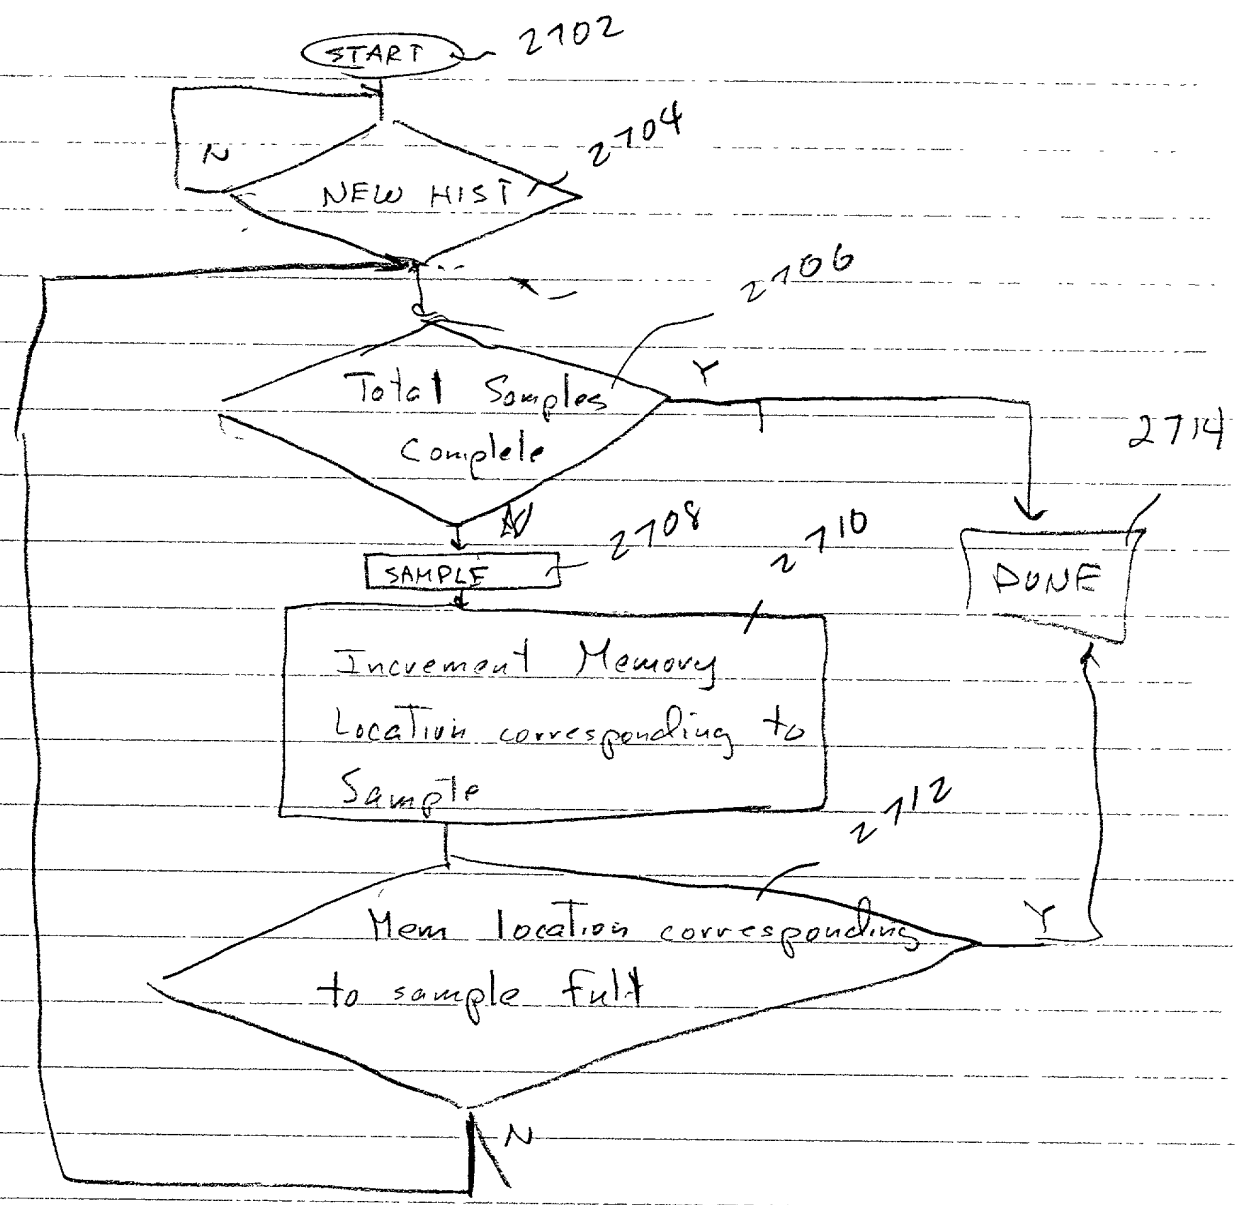 START 2702
N
2704
NEW HIST
2706
Total Samples
Complete
Y
2714
N
2708
2710
SAMPLE
DONE
Increment Memory
Location corresponding to
Sample
2712
Mem location corresponding
to sample full
Y
N